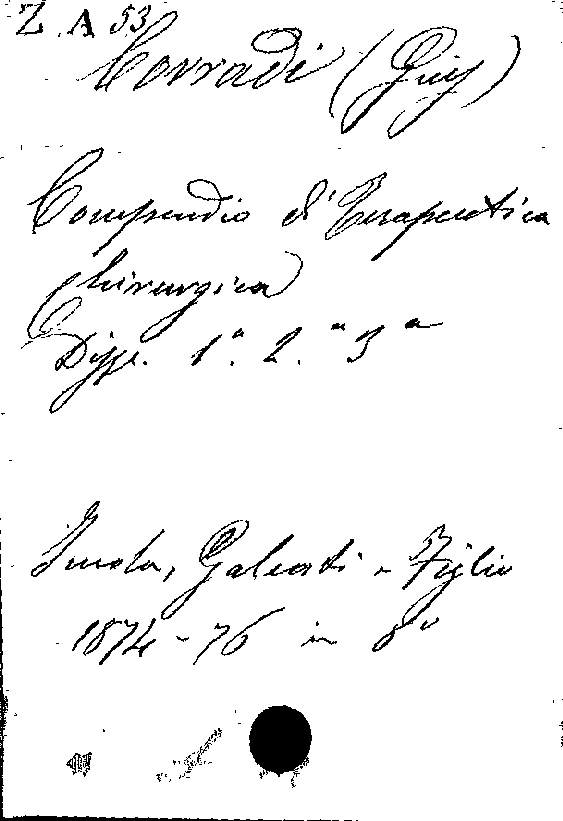 Z. A 53
Corradi (Giu)
Compendio di Terapeutica
chirurgica
Disp. 1a. 2.a 3a
Imola, Galeati e Figlio
1874-76 in 8o